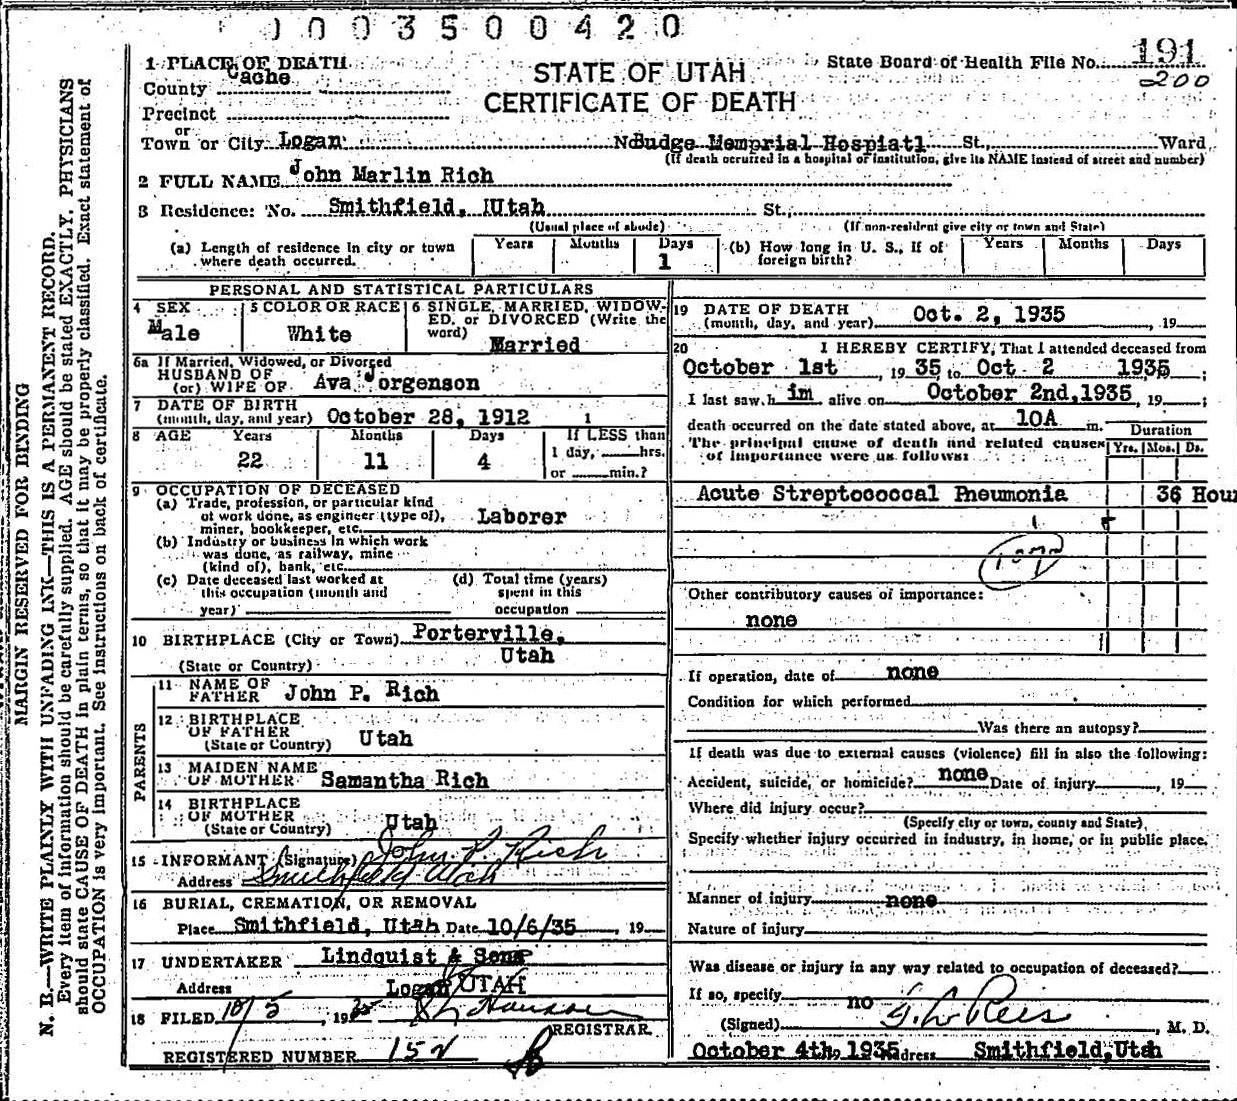 1003500420
1 PLACE OF DEATH
County Cache
STATE OF UTAH
CERTIFICATE OF DEATH
State Board of Health File No. 191
200
Precinct
or
Town or City Logan No. Budge Memprial Hospiatl St., Ward
(If death occurred in a hospital or institution, give its NAME instead of street and number)
2 FULL NAME John Marlin Rich
3 Residence: No. Smithfield, Utah St.,
(Usual place of abode) (If non-resident give city or town and State)
(a) Length of residence in city or town where death occurred. Years Months Days 1
(b) How long in U. S., if of foreign birth? Years Months Days
PERSONAL AND STATISTICAL PARTICULARS
4 SEX Male
5 COLOR OR RACE White
6 SINGLE, MARRIED, WIDOW-
ED, or DIVORCED (Write the
word) Married
6a If Married, Widowed, or Divorced
HUSBAND OF
(or) WIFE OF Ava Jorgenson
7 DATE OF BIRTH
(month, day, and year) October 28, 1912
8 AGE Years 22 Months 11 Days 4
If LESS than
1 day, hrs.
or min.?
9 OCCUPATION OF DECEASED
(a) Trade, profession, or particular kind
of work done, as engineer (type of),
miner, bookkeeper, etc. Laborer
(b) Industry or business in which work
was done, as railway, mine
(kind of), bank, etc.
(c) Date deceased last worked at
this occupation (month and
year)
(d) Total time (years)
spent in this
occupation
10 BIRTHPLACE (City or Town) Porterville,
(State or Country) Utah
PARENTS
11 NAME OF
FATHER John P. Rich
12 BIRTHPLACE
OF FATHER
(State or Country) Utah
13 MAIDEN NAME
OF MOTHER Samantha Rich
14 BIRTHPLACE
OF MOTHER
(State or Country) Utah
15 INFORMANT (Signature) John P. Rich
Address Smithfield Utah
16 BURIAL, CREMATION, OR REMOVAL
Place Smithfield, Utah Date 10/6/35, 19
17 UNDERTAKER Lindquist & Sons
Address Logan UTAH
18 FILED 10/5, 1935
REGISTRAR.
REGISTERED NUMBER 152
19 DATE OF DEATH
(month, day, and year) Oct. 2, 1935, 19
20 I HEREBY CERTIFY, That I attended deceased from
October 1st, 1935 to Oct 2 1935;
I last saw h im alive on October 2nd,1935, 19 ;
death occurred on the date stated above, at 10A m.
The principal cause of death and related causes
of importance were as follows:
Duration
Yrs. Mos. Ds.
Acute Streptococcal Pneumonia 36 Hour
Other contributory causes of importance:
none
If operation, date of none
Condition for which performed
Was there an autopsy?
If death was due to external causes (violence) fill in also the following:
Accident, suicide, or homicide? none Date of injury, 19
Where did injury occur?
(Specify city or town, county and State)
Specify whether injury occurred in industry, in home, or in public place.
Manner of injury none
Nature of injury
Was disease or injury in any way related to occupation of deceased?
If so, specify no
(Signed) , M. D.
October 4th, 1935 Address Smithfield,Utah
MARGIN RESERVED FOR BINDING
N. B.—WRITE PLAINLY WITH UNFADING INK—THIS IS A PERMANENT RECORD.
Every item of information should be carefully supplied. AGE should be stated EXACTLY. PHYSICIANS
should state CAUSE OF DEATH in plain terms, so that it may be properly classified. Exact statement of
OCCUPATION is very important. See instructions on back of certificate.